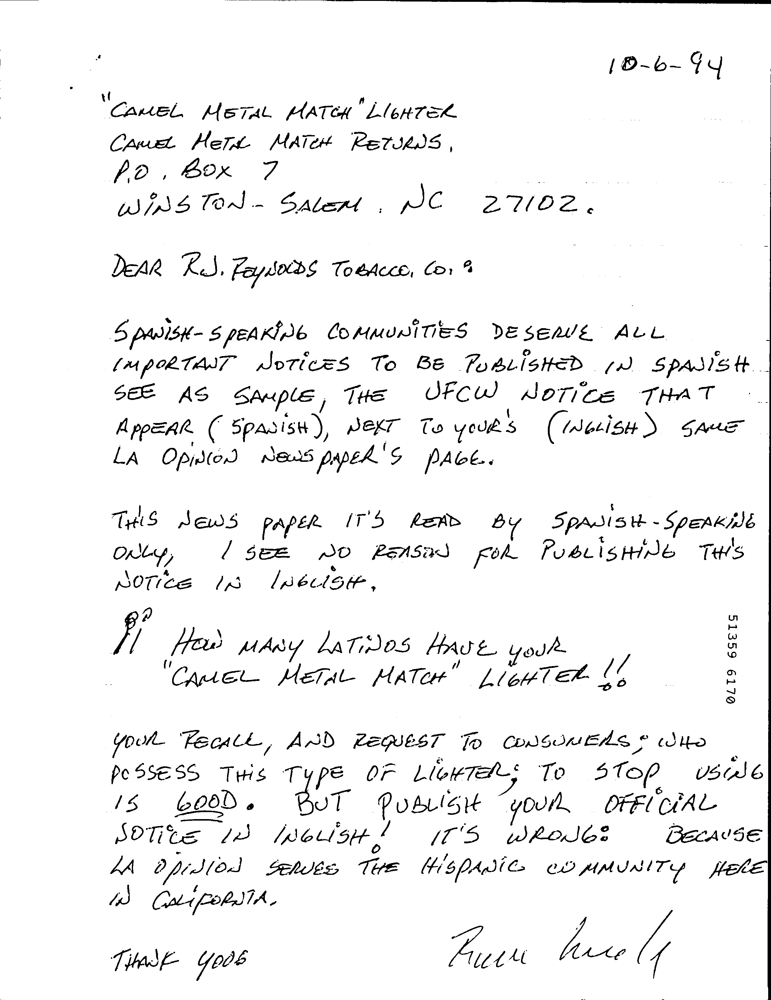 10-6-94
"CAMEL METAL MATCH" LIGHTER
CAMEL METAL MATCH RETURNS,
P.O. BOX 7
WINSTON-SALEM, NC 27102.
DEAR R.J. REYNOLDS TOBACCO, CO. :
SPANISH-SPEAKING COMMUNITIES DESERVE ALL
IMPORTANT NOTICES TO BE PUBLISHED IN SPANISH
SEE AS SAMPLE, THE UFCW NOTICE THAT
APPEAR (SPANISH), NEXT TO YOUR'S (INGLISH) SAME
LA OPINION NEWSPAPER'S PAGE.
THIS NEWS PAPER IT'S READ BY SPANISH-SPEAKING
ONLY, I SEE NO REASON FOR PUBLISHING THIS
NOTICE IN INGLISH.
¡¡ HOW MANY LATINOS HAVE YOUR
"CAMEL METAL MATCH" LIGHTER !!
51359 6170
YOUR RECALL, AND REQUEST TO CONSUMERS; WHO
POSSESS THIS TYPE OF LIGHTER; TO STOP USING
IS GOOD. BUT PUBLISH YOUR OFFICIAL
NOTICE IN INGLISH! IT'S WRONG: BECAUSE
LA OPINION SERVES THE HISPANIC COMMUNITY HERE
IN CALIFORNIA.
THANK YOUS